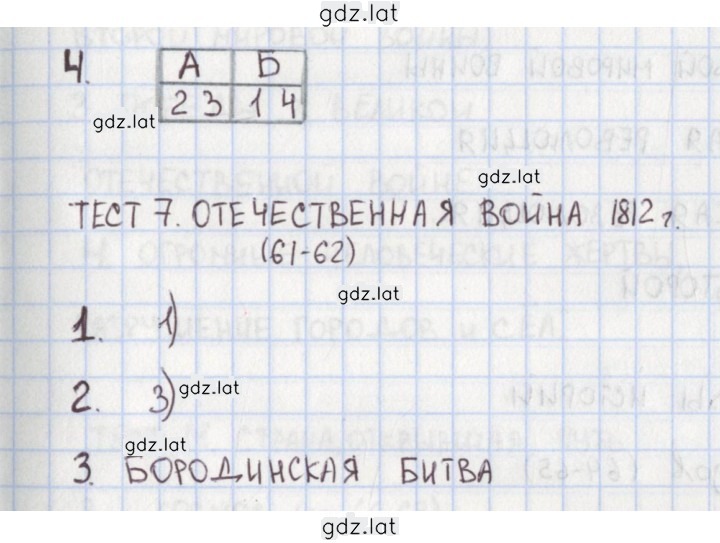 gdz.lat
4. А Б
2 3 1 4
gdz.lat
gdz.lat
ТЕСТ 7. ОТЕЧЕСТВЕННАЯ ВОЙНА 1812 г.
(61-62)
gdz.lat
1. 1)
2. 3) gdz.lat
gdz.lat
3. БОРОДИНСКАЯ БИТВА
gdz.lat